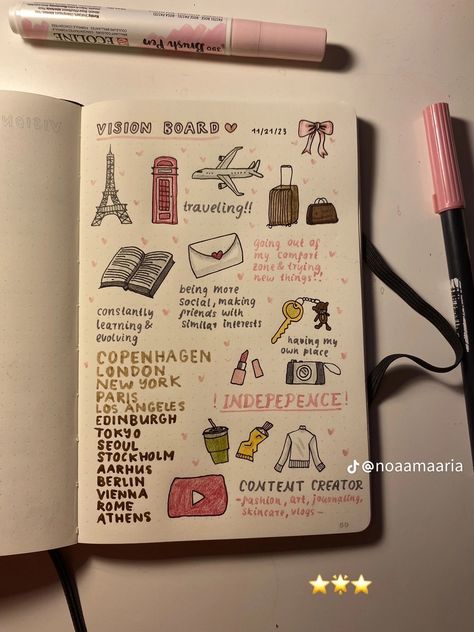 ECOLINE
Brush Pen
390
VISION BOARD
11/21/23
traveling!!
going out of
my comfort
zone & trying
new things!!
being more
social, making
friends with
similar interests
constantly
learning &
evolving
having my
own place
COPENHAGEN
LONDON
NEW YORK
PARIS
LOS ANGELES
EDINBURGH
TOKYO
SEOUL
STOCKHOLM
AARHUS
BERLIN
VIENNA
ROME
ATHENS
! INDEPEPENCE !
@noaamaaria
CONTENT CREATOR
-fashion, art, journaling,
skincare, vlogs-